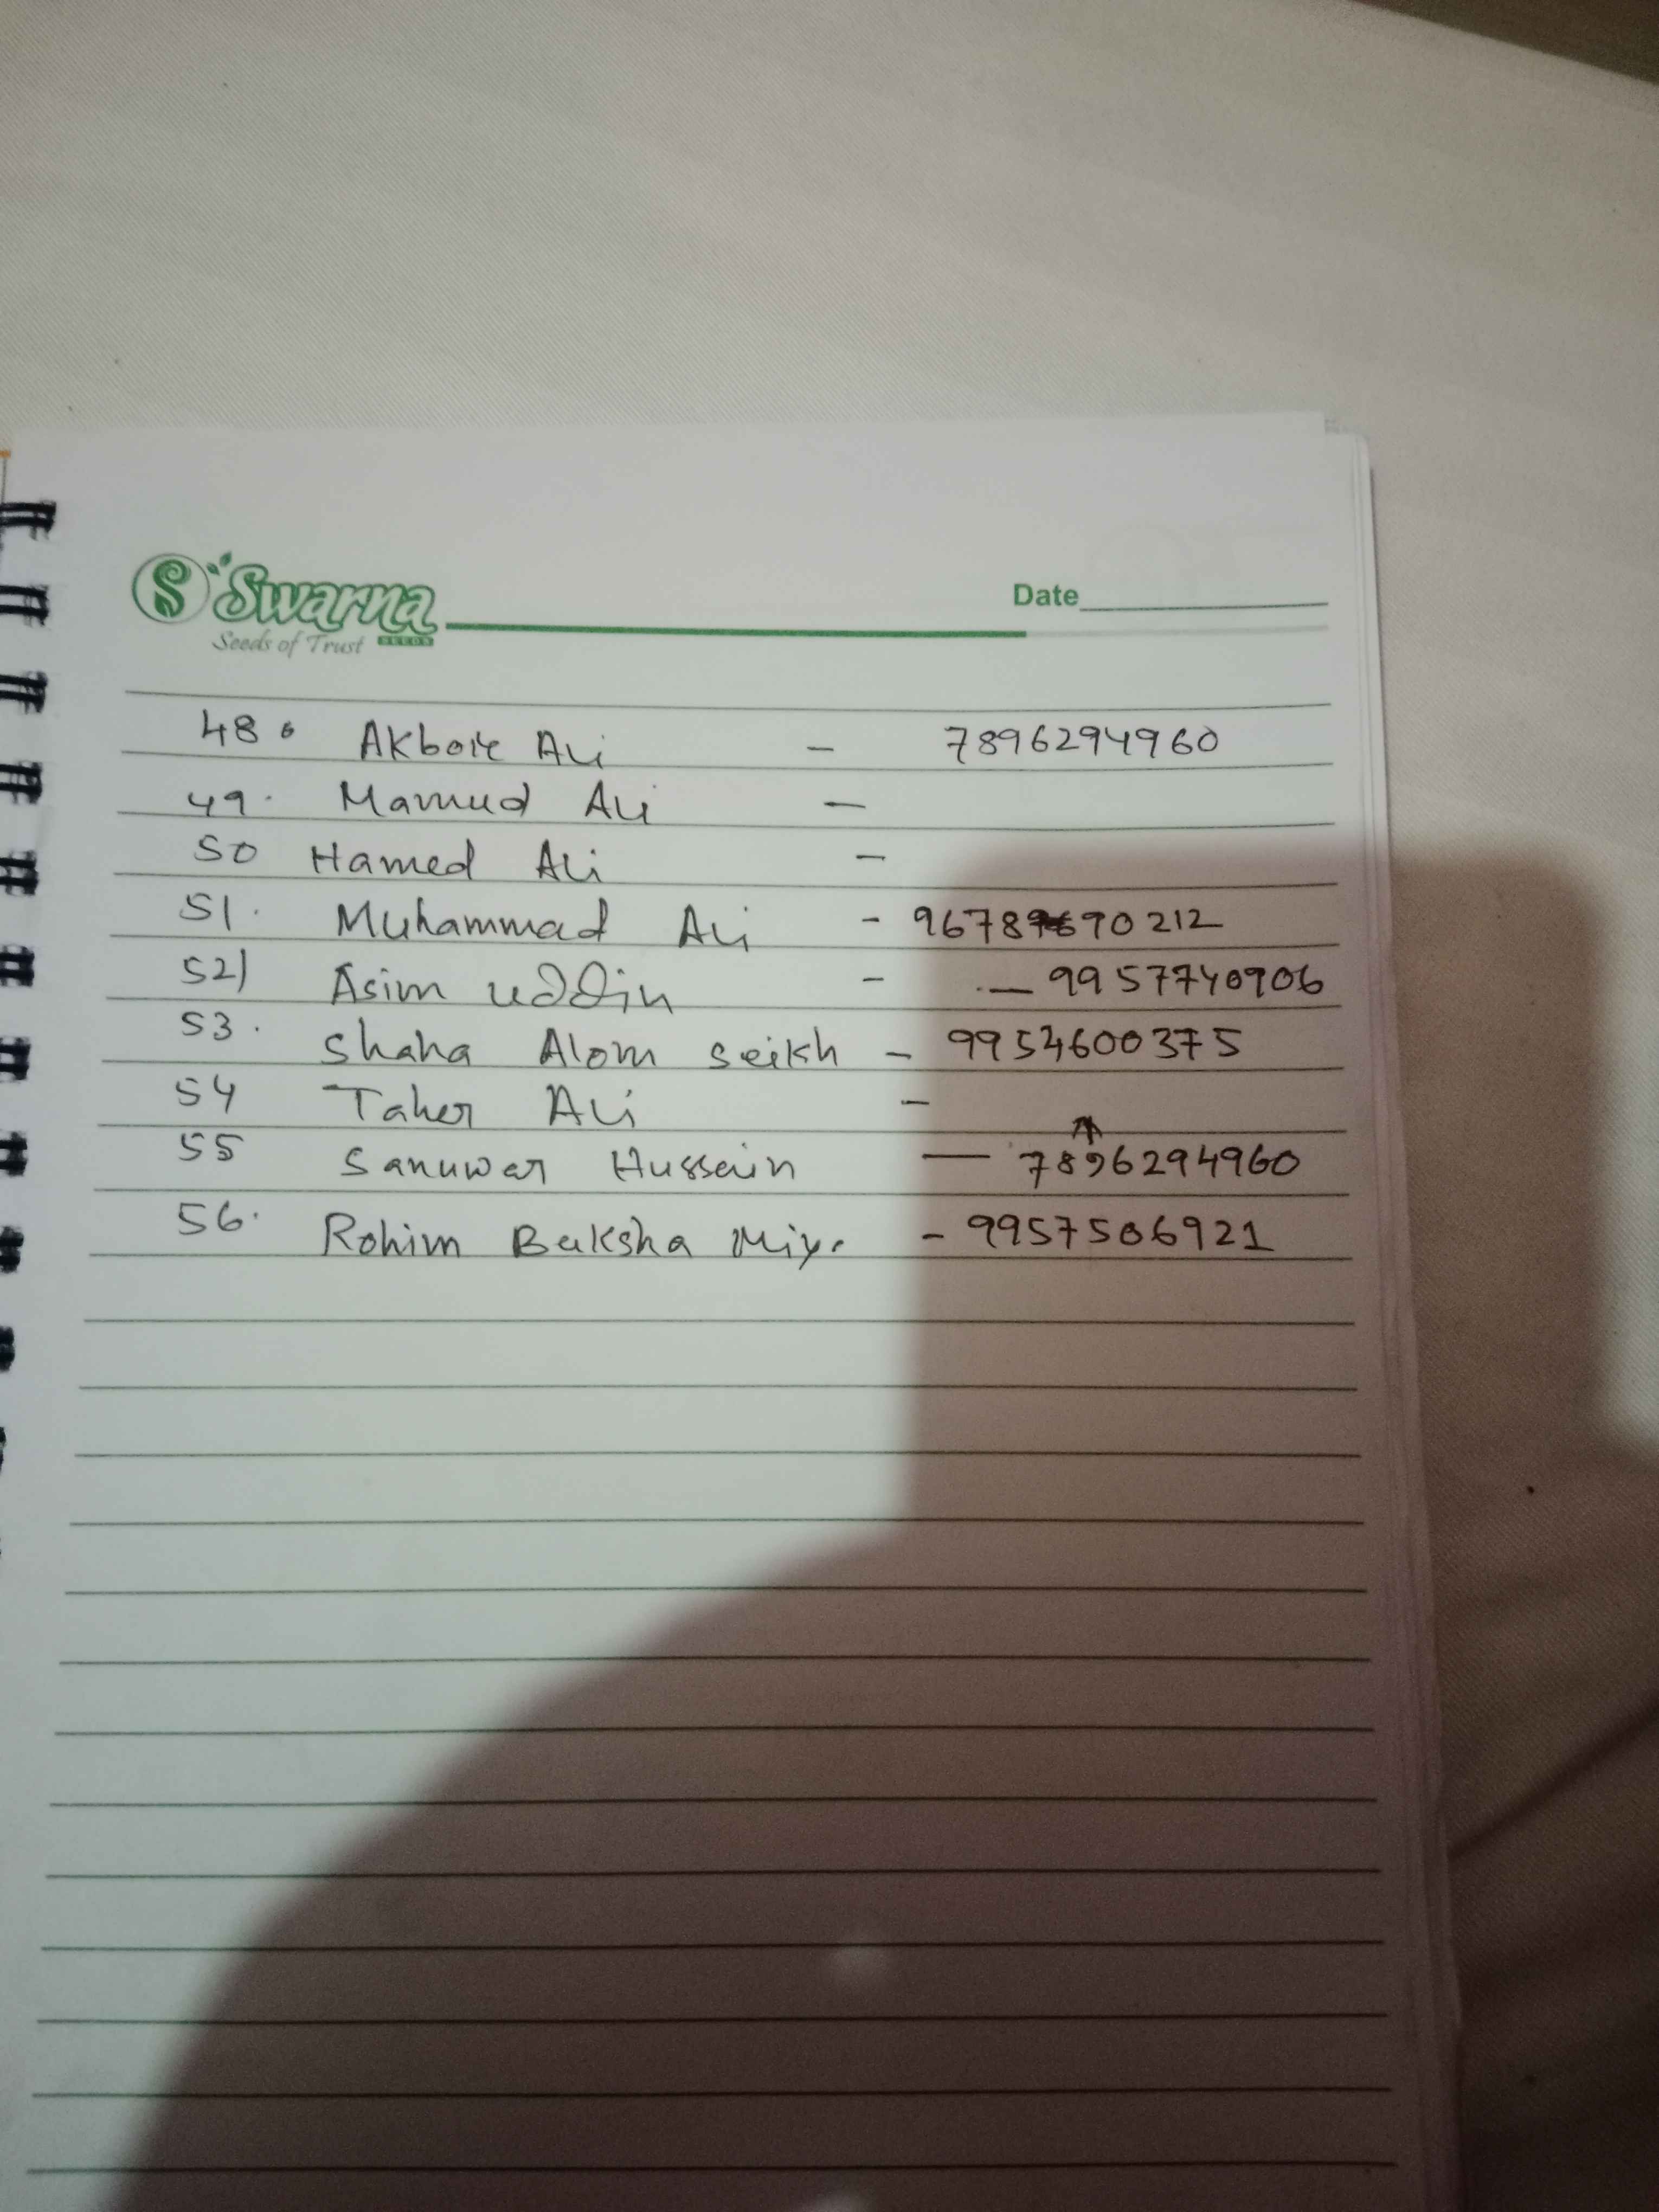 Swarna
Seeds of Trust SEEDS
Date
48. Akbor Ali - 7896294960
49. Mamud Ali -
50 Hamed Ali -
51. Muhammad Ali -
52) Asim uddin - - 9957740906
53. Shaha Alom Seikh - 9954600375
54 Taher Ali -
55 Sanuwar Hussain - 7896294960
56. Rohim Baksha Miy. - 9957506921